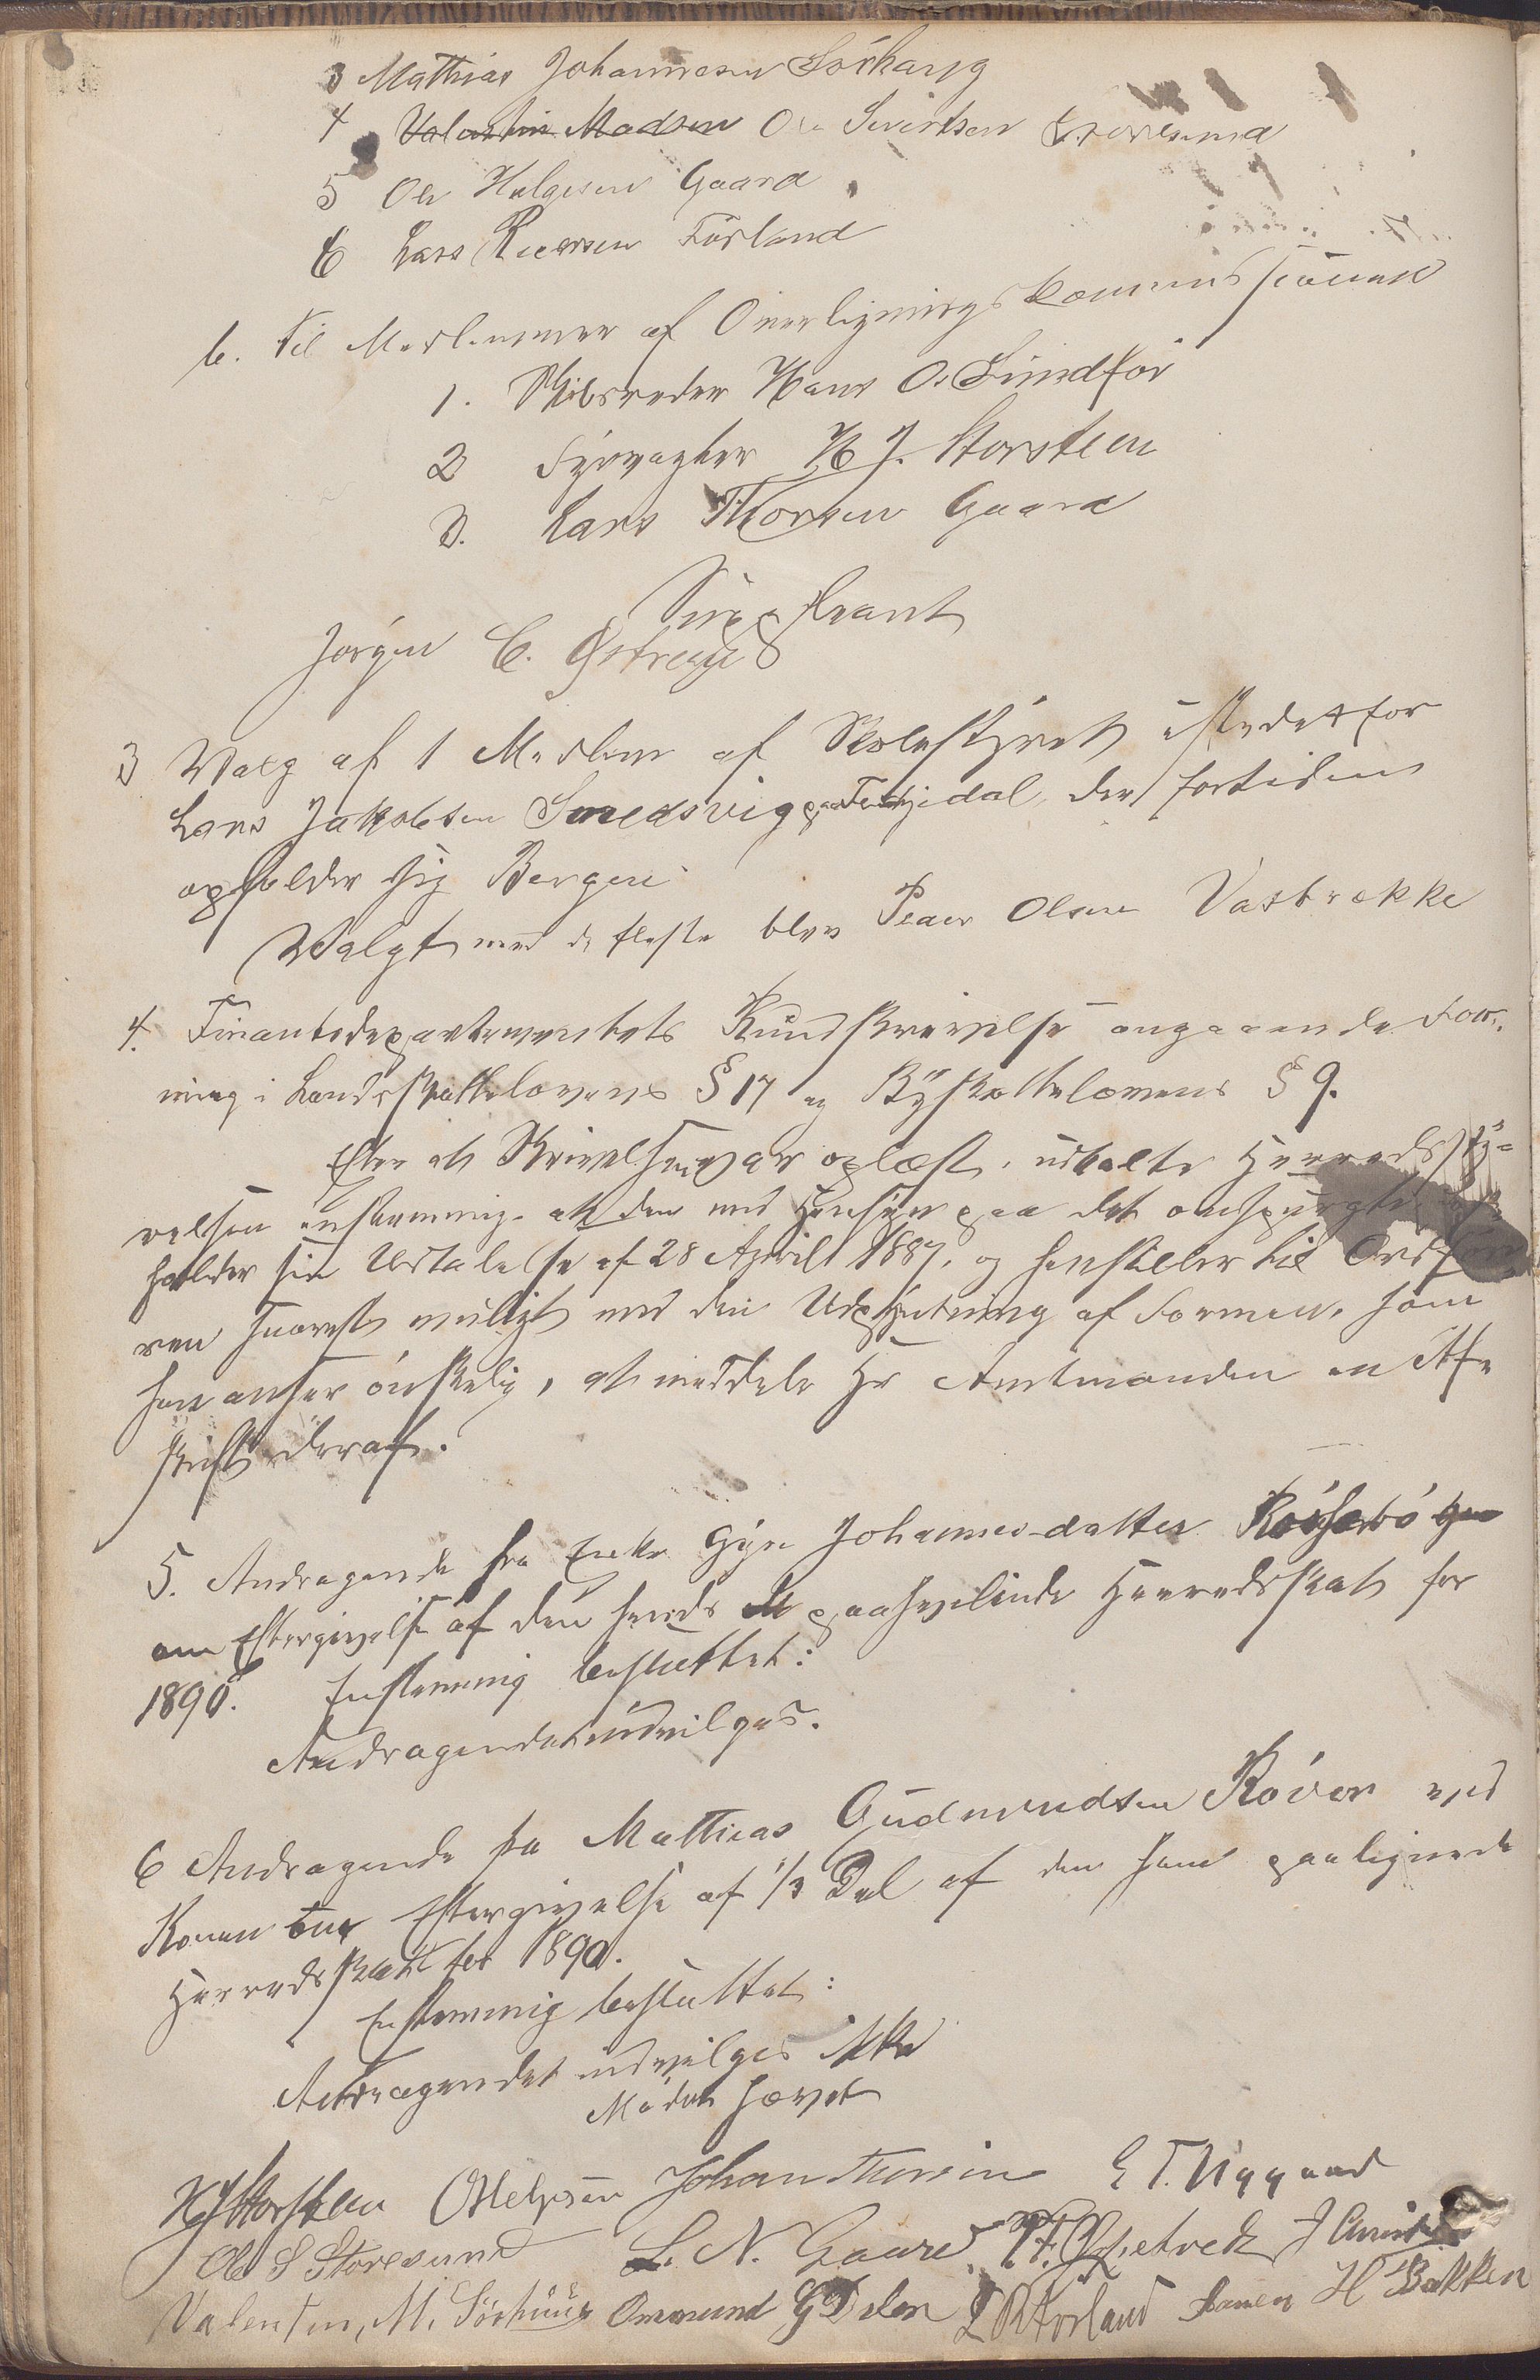 3 Mathias Johannesen Sörhaug
4 Valentin Madsen Ole Sivertsen Storesund
5 Ole Helgesen Gaard
6 Lars Reiersen Førland
b. Til Medlemmer af Overligningskommissionen
1. Skibsreder Hans O. Lindför
2 Fyrvogter H J. Storsteen
3. Lars Thorsen Gaard
Suppleant
Jørgen C. Østrem
3 Valg af 1 Medlem af Skolestyret istedetfor
Lars Jakobsen Smedsvig paa der fortiden
opholder sig Bergen
Valgt med de fleste blev Peder Olsen Vasbrække
4. Finantsdepartementets Rundskrivelse angaaende For-
ning i Landsskattelovens § 17 og Byskattelovens § 9.
Efter at Skrivelsen var oplæst, udtalte Herredssty-
relsen enstemmig at den med Hensyn paa det omspurgte
holder sin Udtalelse af 28 April 1887, og henstiller til Ordfø-
ren snarest muligt med den Udfyldning af Formen, som
han anser ønskelig, at meddele Hr Amtmanden en Af-
skrift deraf.
5. Andragende fra Enke Gyri Johannesdatter Røsebø
om Eftergivelse af den hende paahvilende Herredsskat for
1890. Enstemmig besluttet:
Andragendet indvilges.
6 Andragende fra Mathias Gudmundsen Röver ved
Konen om Eftergivelse af 1/3 Del af den ham paalignede
Herredsskat for 1890.
Enstemmig besluttet:
Andragendet indvilges ikke
Mødet hævet
H J Storsteen O Helgesen Johan Thorsen E T. Nygaard
Ole S Storesund L. N. Gaard
Valentin M. Sörhaug Ommund G Dalen L R Førland H Bakken